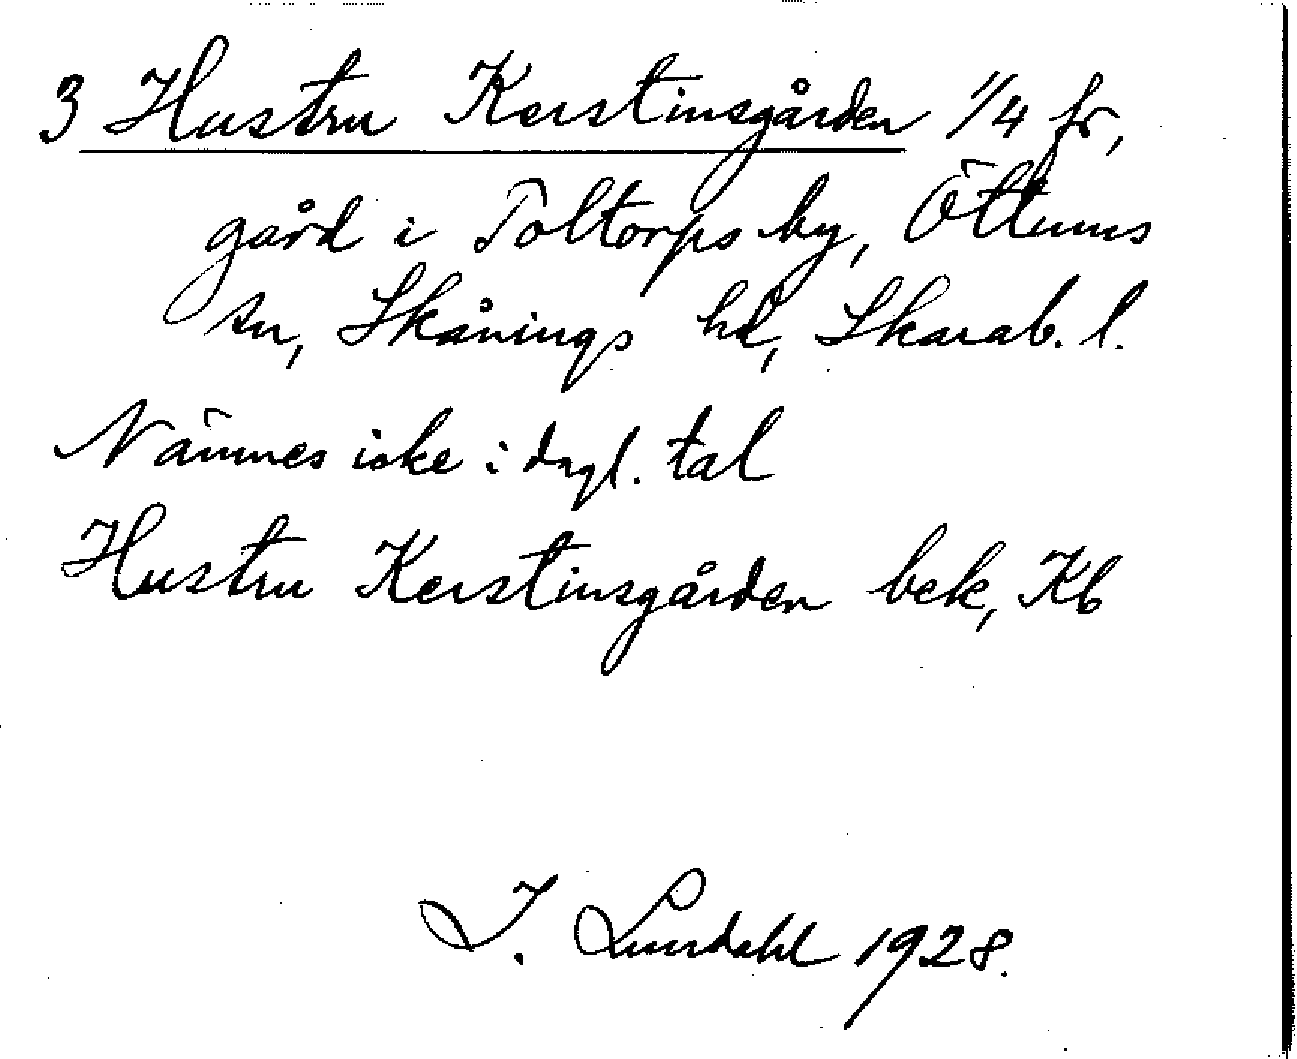 3 Hustru Kerstinsgården 1/4 fr,
gård i Toltorps by, Öttums
sn, Skånings hd, Skarab. l.
Nämnes icke i dagl. tal
Hustru Kerstinsgården bek, Kb
I. Lundahl 1928.